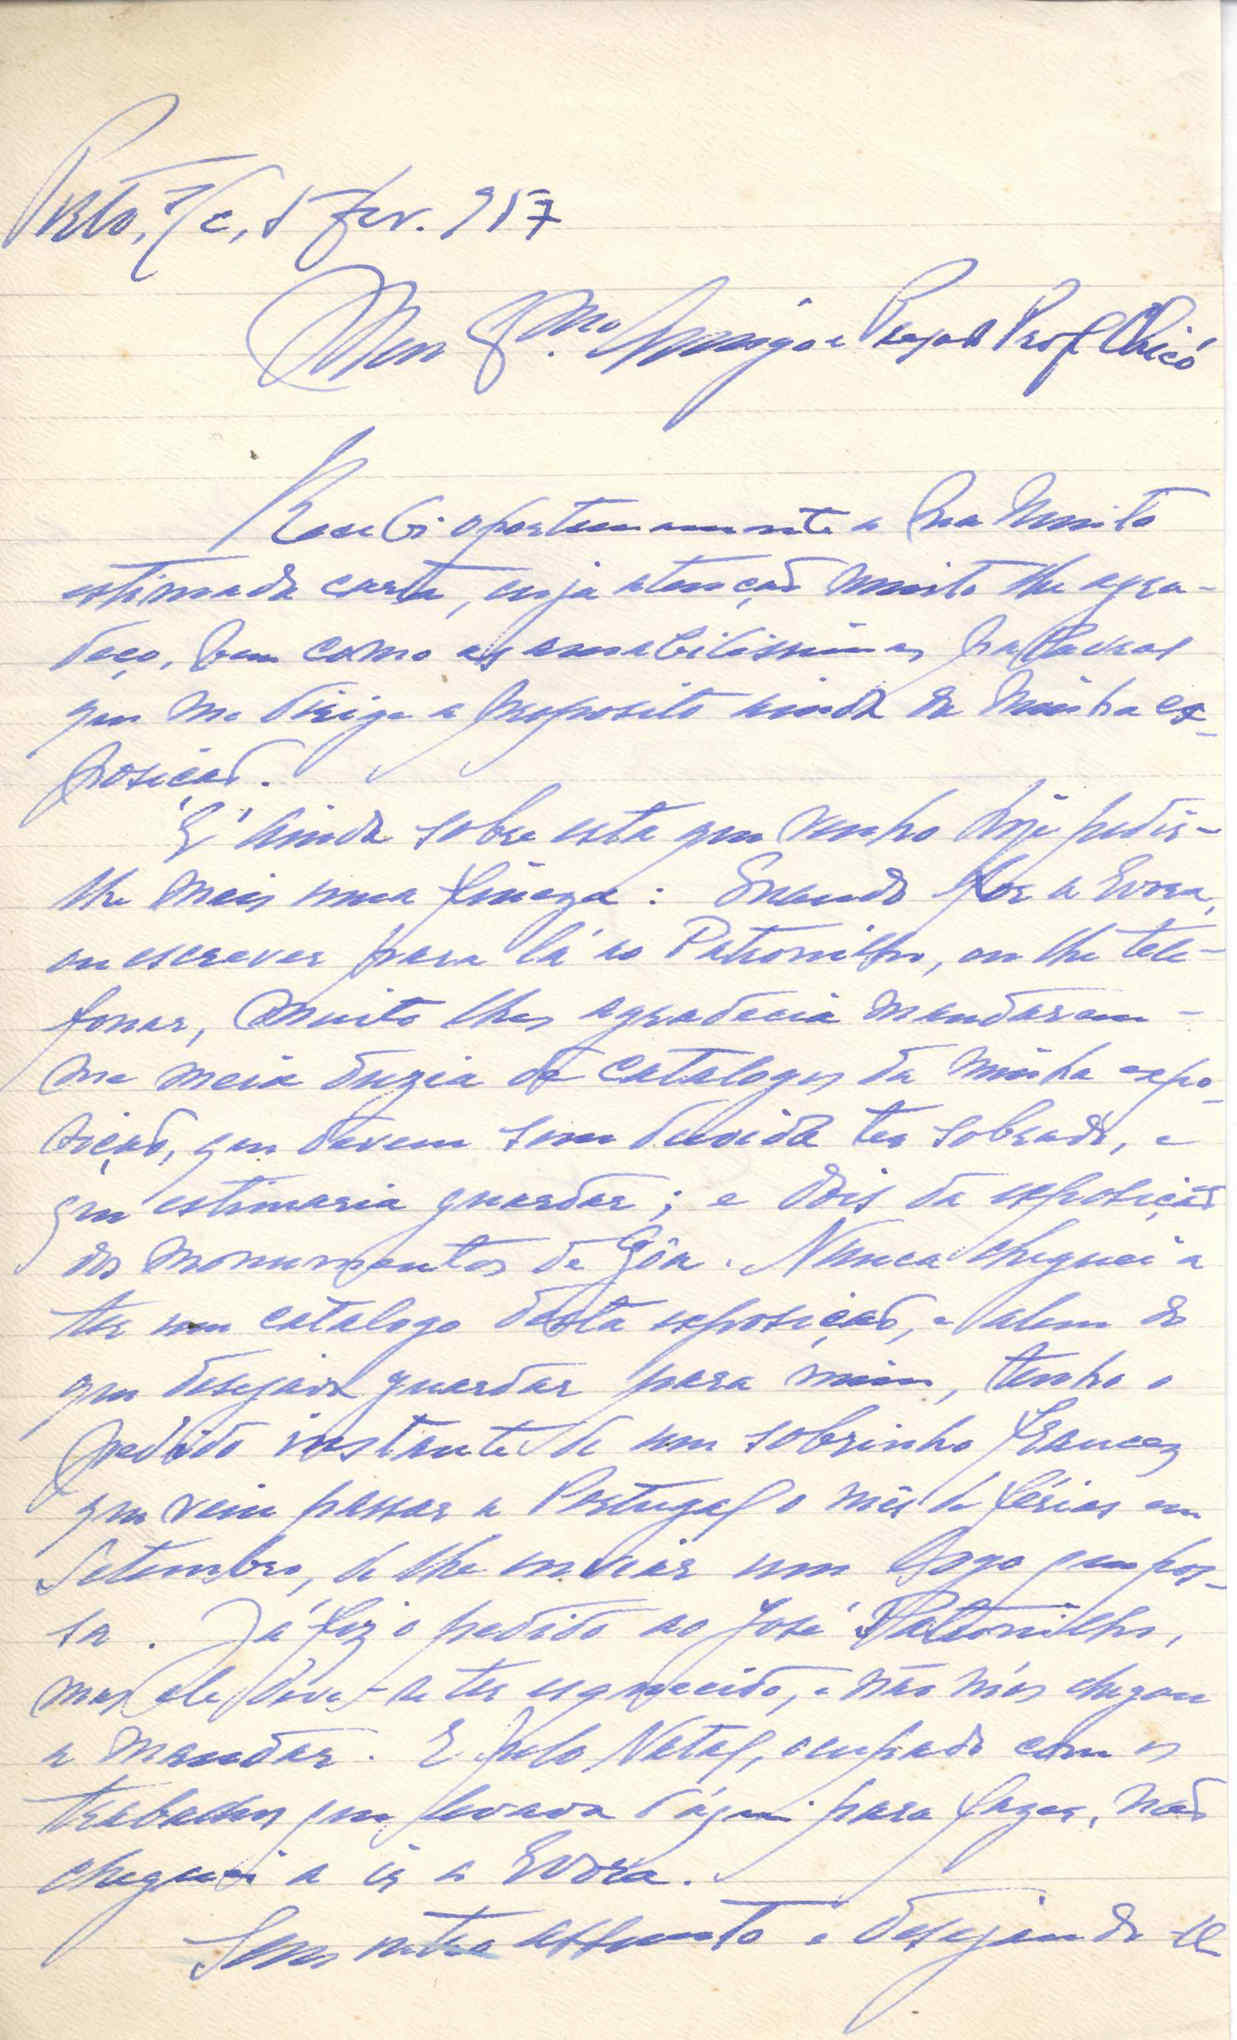 Porto, s/c, 5 Fev. 957
Meu Exmo. Amigo e Prezado Prof. Chicó
Recebi oportunamente a sua muito
estimada carta, cuja atenção muito lhe agra-
deço, bem como as amabilissimas palavras
que me dirige a proposito ainda da minha ex-
posição.
E' ainda sobre esta que venho hoje pedir-
lhe mais uma fineza: Quando for a Evora,
ou escrever para lá ao Patronilho, ou lhe tele-
fonar, muito lhes agradecia mandarem-
me meia duzia de catalogos da minha expo-
sição, que devem sem duvida ter sobrado, e
que estimaria guardar; e dois da exposição
dos monumentos de Gôa. Nunca cheguei a
ter um catalogo desta exposição, e alem do
que desejava guardar para mim, tenho o
pedido instante de um sobrinho francez
que vem passar a Portugal o mês de férias em
Setembro, de lhe enviar um logo que pos-
sa. Já fiz o pedido ao José Patronilho,
mas ele deve-se ter esquecido, e não mos chegou
a mandar. E pelo Natal, ocupado com os
trabalhos que levava d'aqui para fazer, não
cheguei a ir a Evora.
Sem outro assunto e desejando-lhe